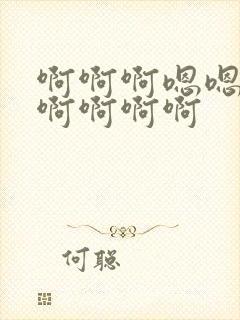 啊啊啊嗯嗯
啊啊啊啊
何聪